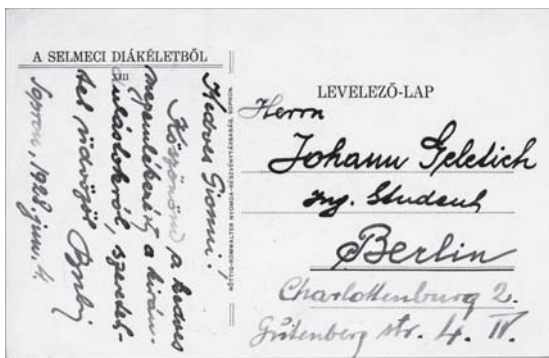 A SELMECI DIÁKÉLETBŐL
XIII
Kedves Gionni!
Köszönöm a kedves
megemlékezést a kirán-
dulástokról, szeretet-
tel üdvözöl
Sopron, 1928. jun. 4.
RÖTTIG-ROMWALTER NYOMDA-RÉSZVÉNYTÁRSASÁG, SOPRON.
LEVELEZŐ-LAP
Herrn
Johann Geletich
Ing. Student
Berlin
Charlottenburg 2.
Gutenberg str. 4. IV.